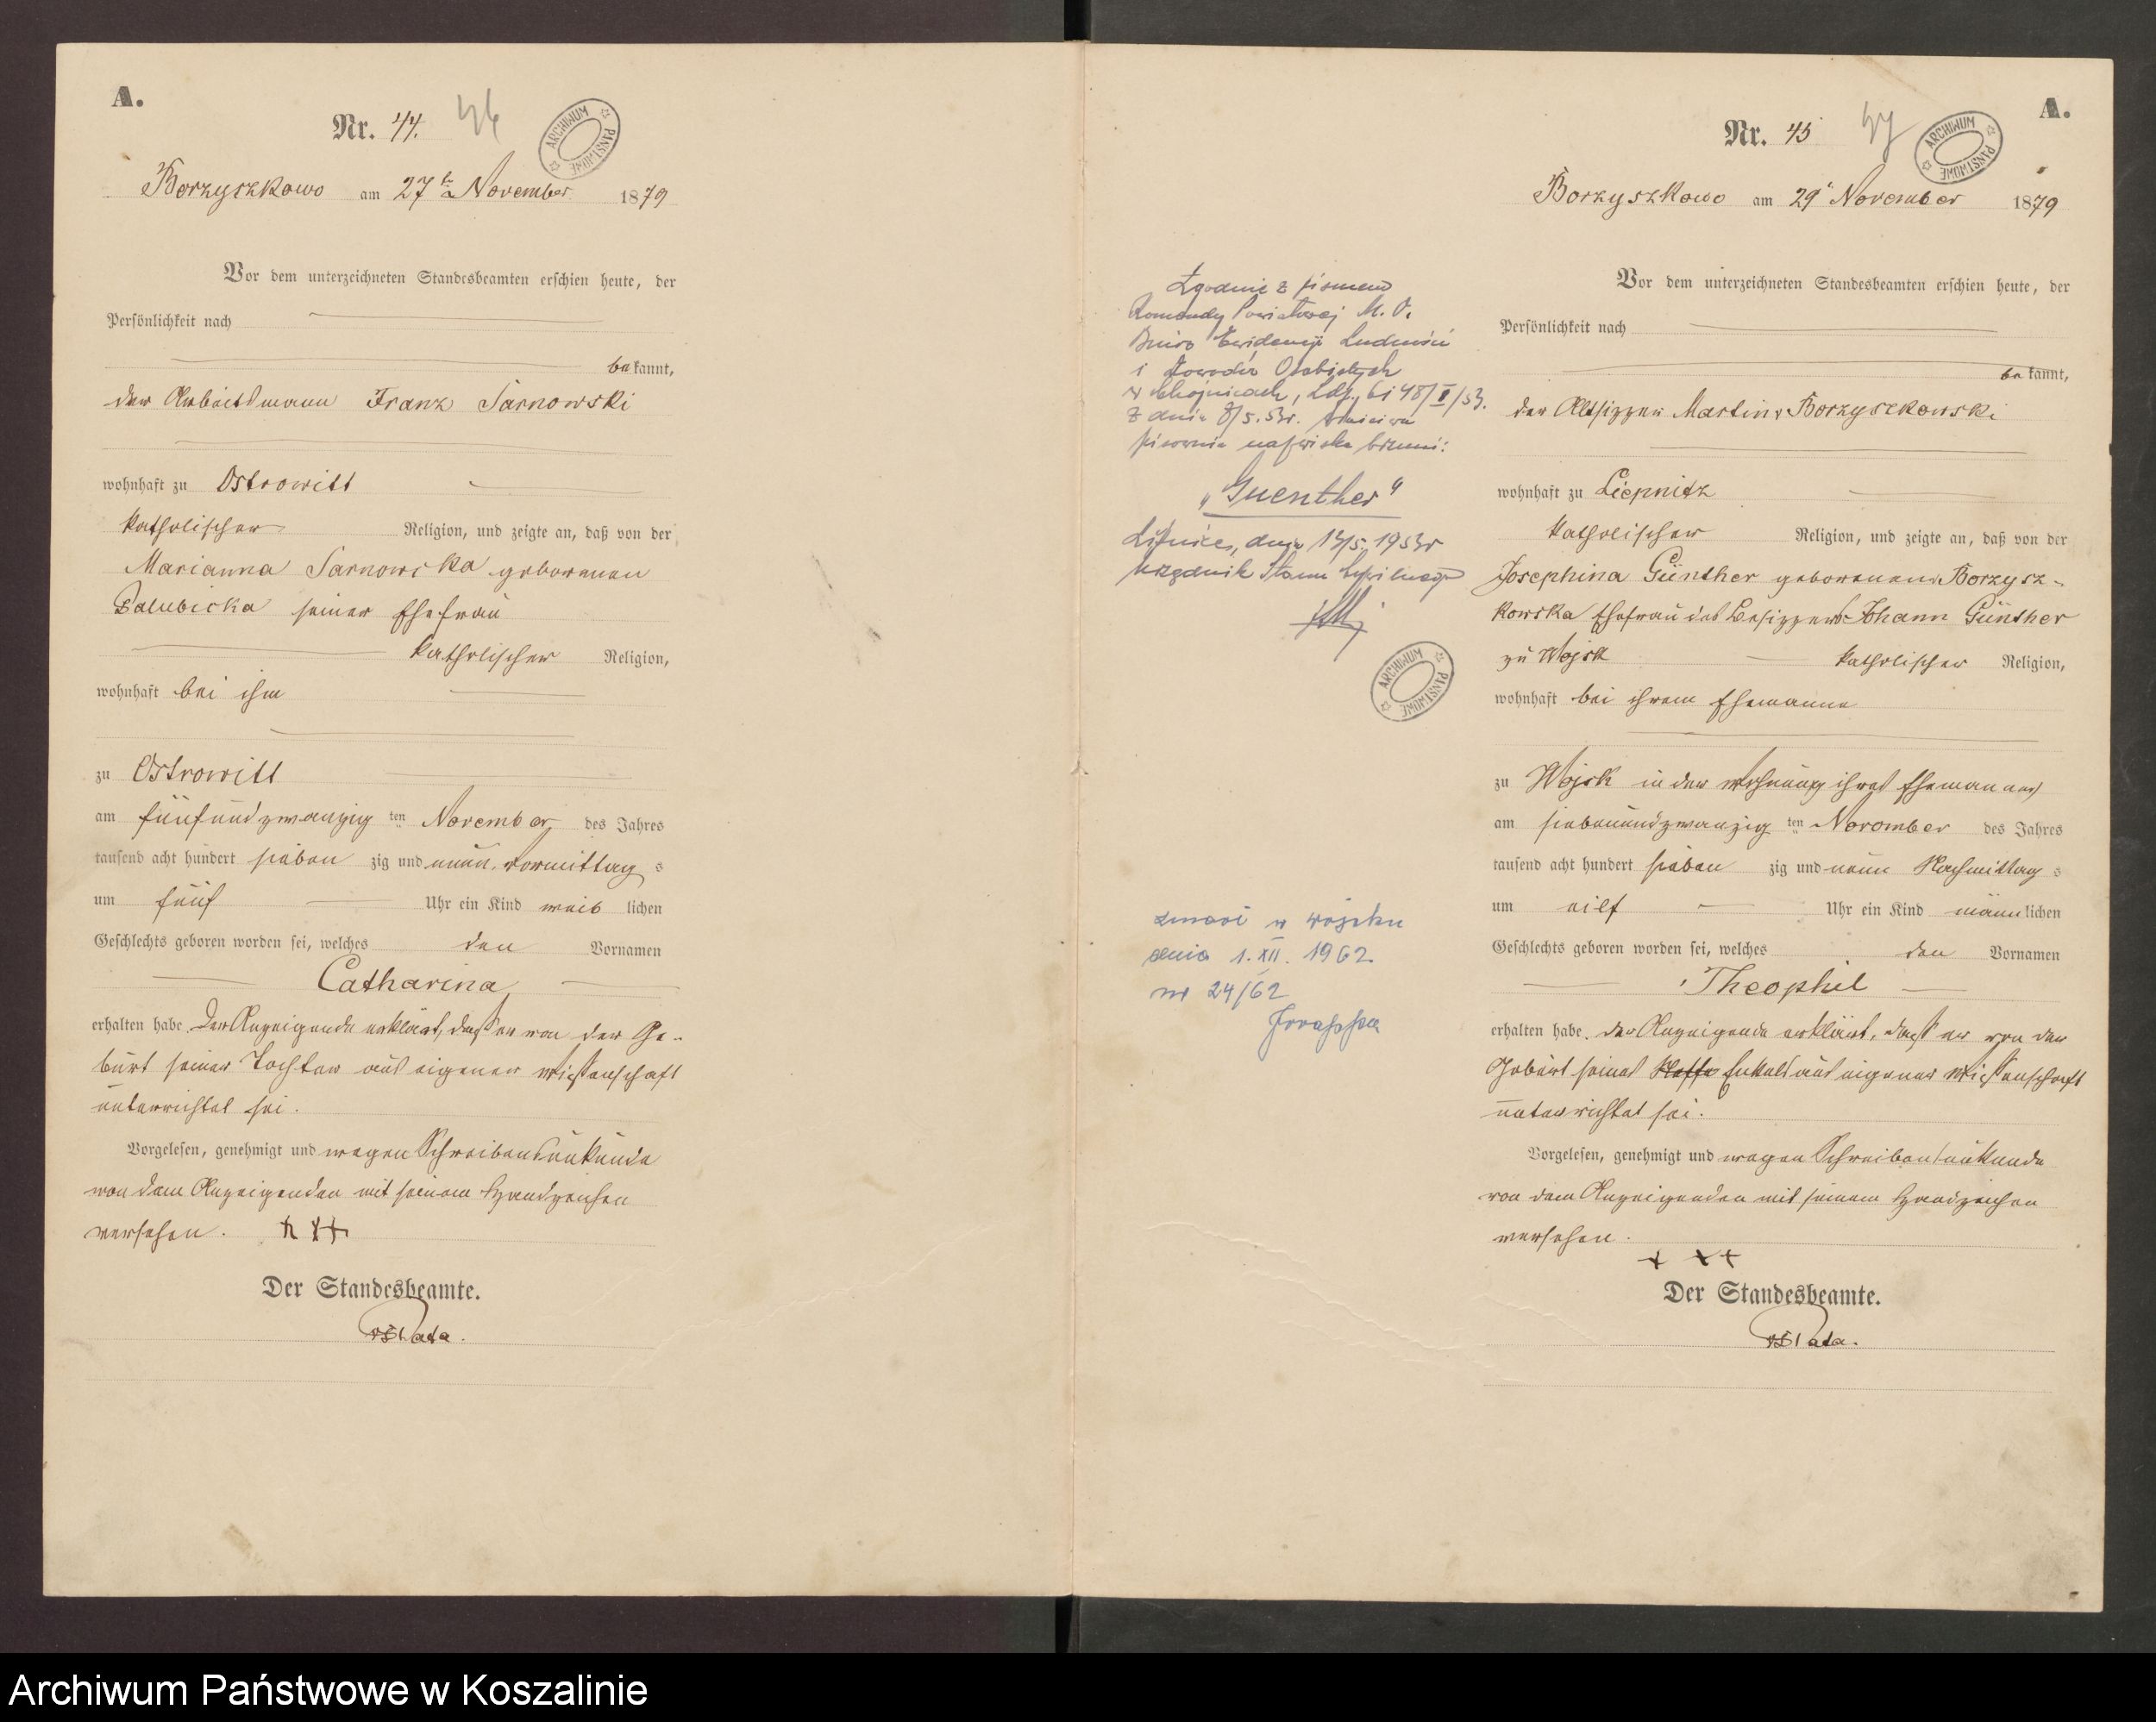 A.
Nr. 44. 46
ARCHIWUM PAŃSTWOWE
Borzyszkowo am 27ten November 1879
Vor dem unterzeichneten Standesbeamten erschien heute, der
Persönlichkeit nach
bekannt,
der Arbeitsmann Franz Sarnowski
wohnhaft zu Ostrowitt
katholischer Religion, und zeigte an, daß von der
Marianna Sarnowska geborenen
Palubicka seiner Ehefrau
katholischer Religion,
wohnhaft bei ihm
zu Ostrowitt
am fünfundzwanzig ten November des Jahres
tausend acht hundert sieben zig und neun, Vormittag s
um fünf Uhr ein Kind weib lichen
Geschlechts geboren worden sei, welches den Vornamen
Catharina
erhalten habe. Der Anzeigende erklärt, dass er von der Ge-
burt seiner Tochter aus eigener Wissenschaft
unterrichtet sei.
Vorgelesen, genehmigt und wegen Schreibensunkunde
von dem Anzeigenden mit seinem Handzeichen
versehen. +++
Der Standesbeamte.
A.
Nr. 45 47
ARCHIWUM PAŃSTWOWE
Borzyszkowo am 29 November 1879
Vor dem unterzeichneten Standesbeamten erschien heute, der
Persönlichkeit nach
bekannt,
der Altsitzer Martin v Borzyszkowski
wohnhaft zu Liepnitz
katholischer Religion, und zeigte an, daß von der
Josephina Günther geborenen v Borzysz-
kowska Ehefrau des Besitzers Johann Günther
zu Wojsk katholischer Religion,
wohnhaft bei ihrem Ehemanne
zu Wojsk in der Wohnung ihres Ehemannes
am siebenundzwanzig ten November des Jahres
tausend acht hundert sieben zig und neun Nachmittag s
um eilf Uhr ein Kind männlichen
Geschlechts geboren worden sei, welches den Vornamen
Theophil
erhalten habe. Der Anzeigende erklärt, dass er von der
Geburt seines Enkels aus eigener Wissenschaft
unterrichtet sei.
Vorgelesen, genehmigt und wegen Schreibensunkunde
von dem Anzeigenden mit seinem Handzeichen
versehen.
+ + +
Der Standesbeamte.
Zgodnie z pismem
Komendy Powiatowej M. O.
Biuro Ewidencji Ludności
i Dowodów Osobistych
w Chojnicach, Ldz.
z dnia 8/5.53r. właściwa
pisownia nazwiska brzmi:
„Guenther"
Lipnica, dnia 13/5. 1953r
Urzędnik Stanu Cywilnego
ARCHIWUM PAŃSTWOWE
zmarł w Wojsku
dnia 1. XII. 1962.
nr 24/62
Archiwum Państwowe w Koszalinie